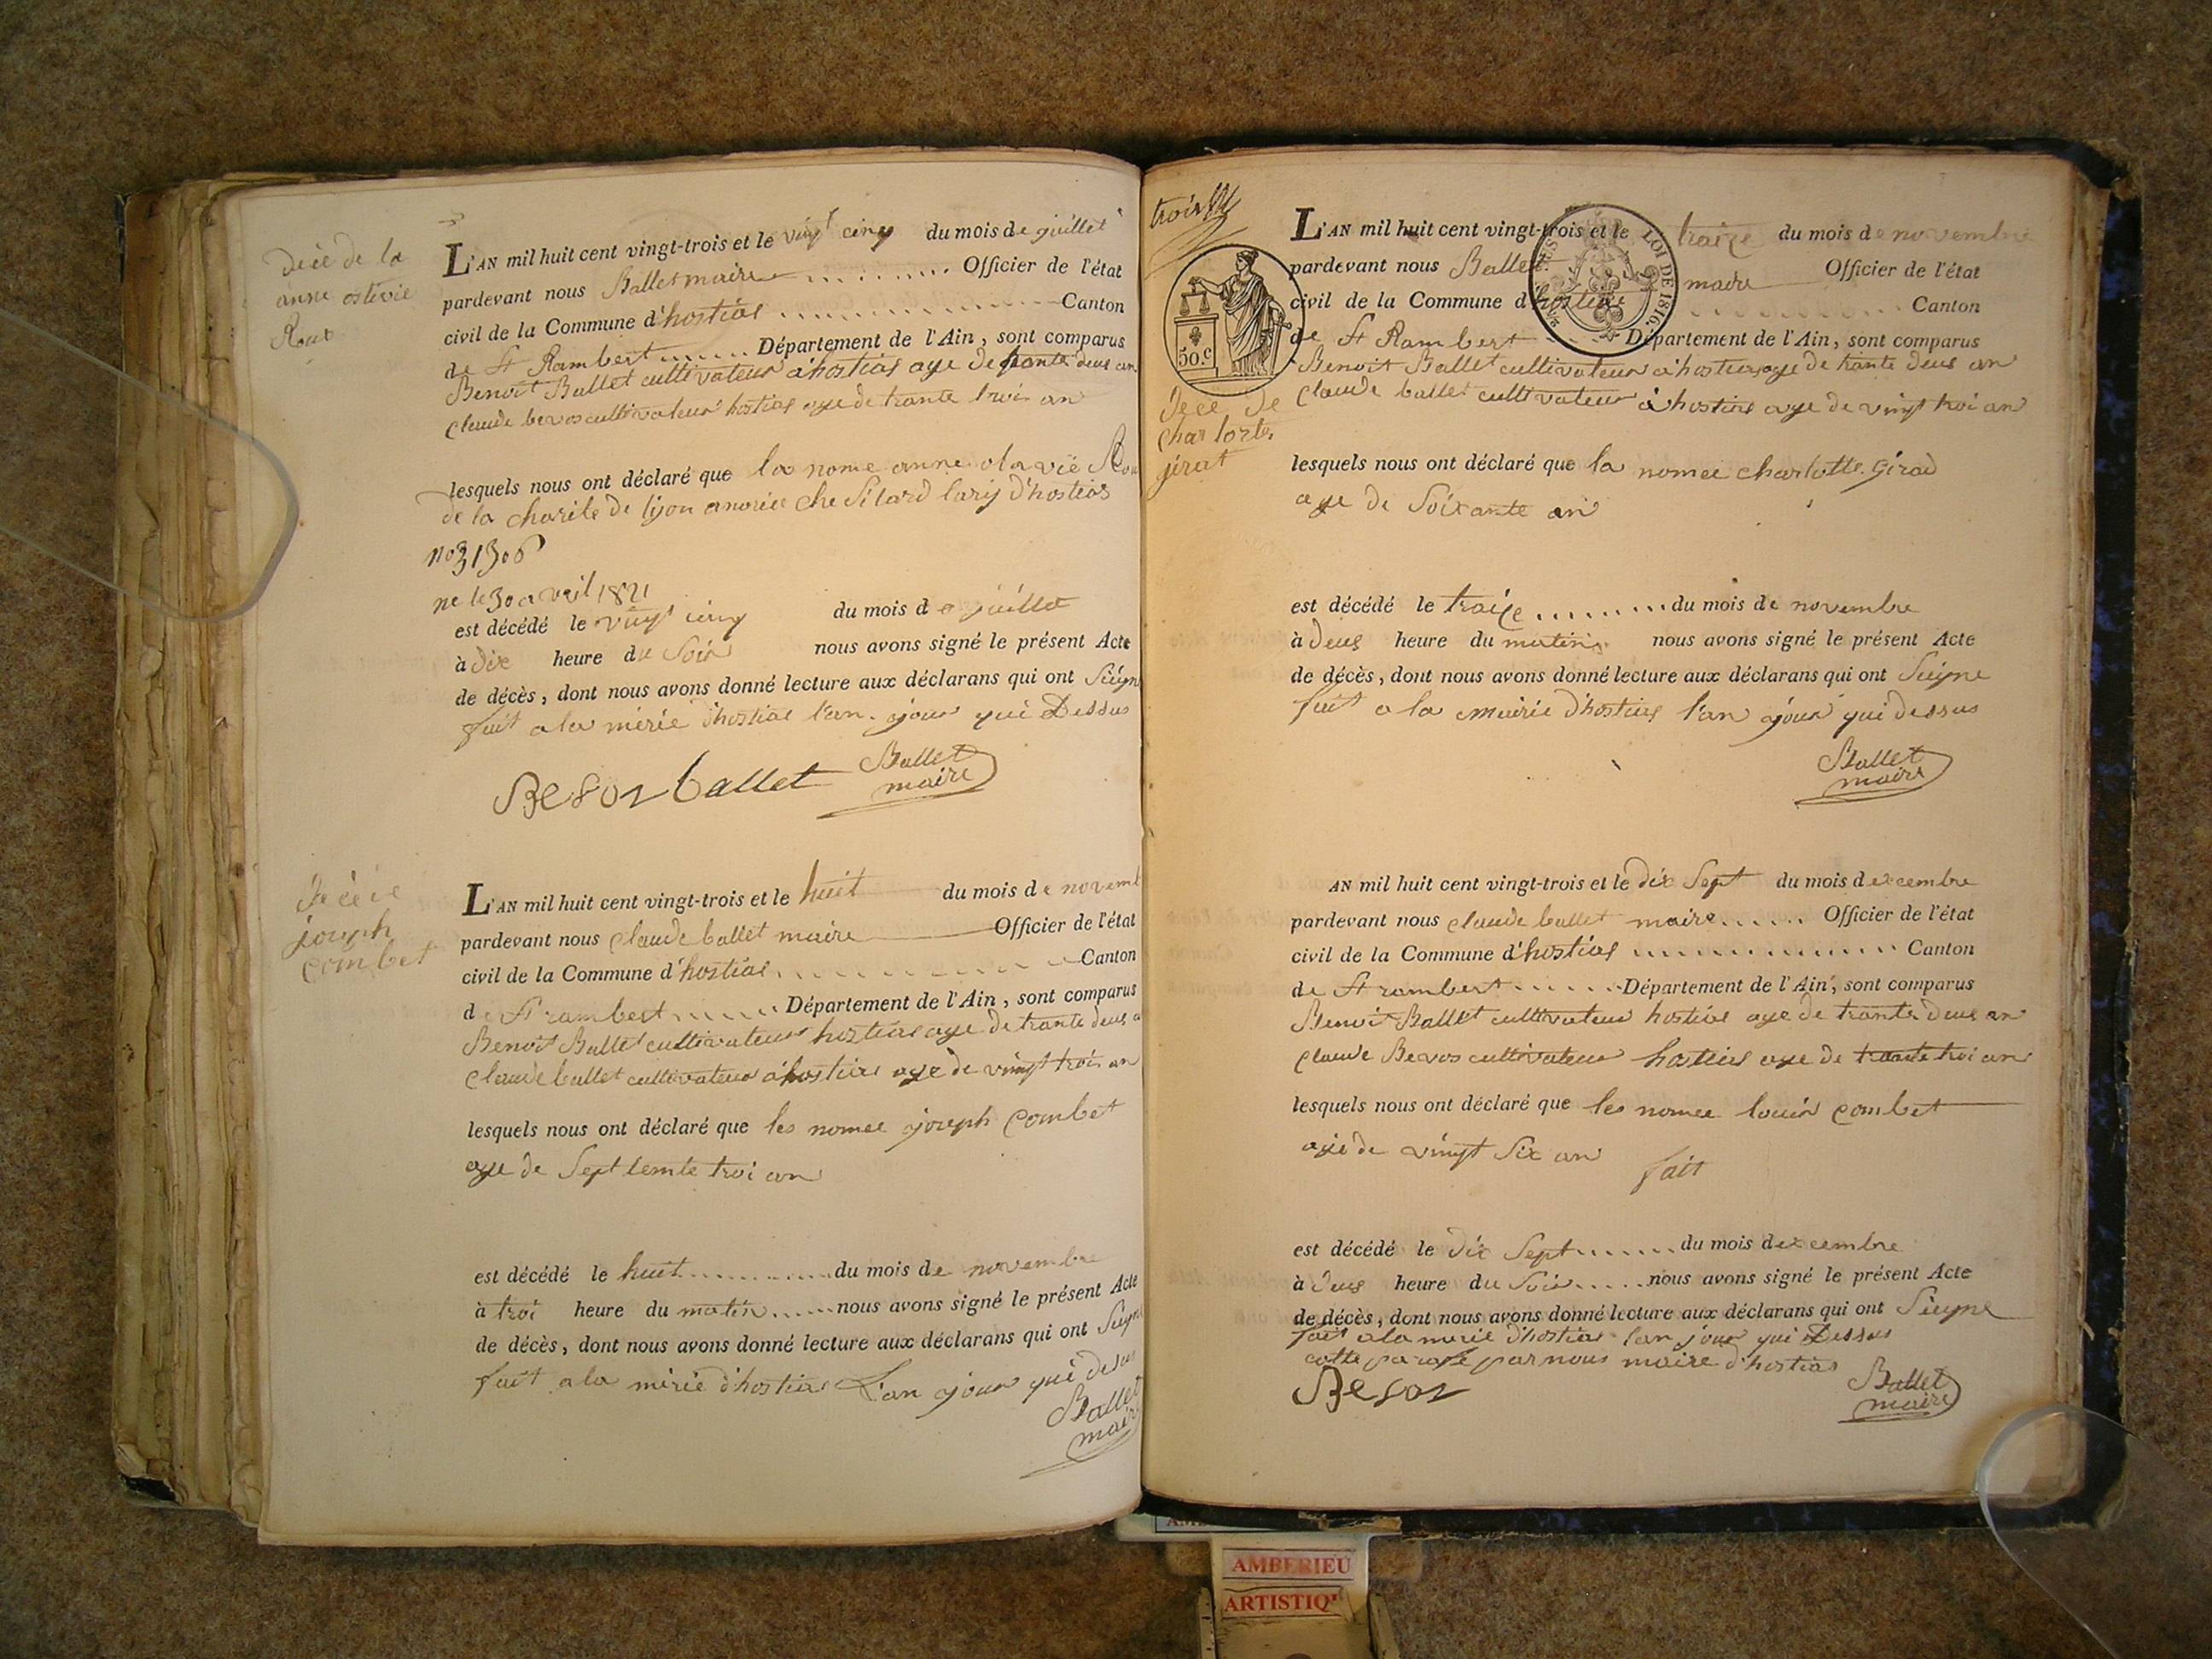 decè de la
anne
Roux
L'AN mil huit cent vingt-trois et le vingt cinq du mois de juillet
pardevant nous Ballet maire Officier de l'état
civil de la Commune d'hostias Canton
de St Rambert Département de l'Ain, sont comparus
Benoit Ballet cultivateur a hostias age de trante deus an
claude bevos cultivateur hostias age de trante troi an
lesquels nous ont déclaré que la nome anne
de la charite de lion
no 31306
ne le 30 avril 1821
est décédé le vingt cinq du mois de juillet
à dix heure du soir nous avons signé le présent Acte
de décès, dont nous avons donné lecture aux déclarans qui ont Siigne
fait a la mèrie d'hostias l'an ajour qui Dessus
Bevoz ballet Ballet
maire
joseph
combet
L'AN mil huit cent vingt-trois et le huit du mois de novemb
pardevant nous claude ballet maire Officier de l'état
civil de la Commune d'hostias Canton
de St rambert Département de l'Ain, sont comparus
Benoit Ballet cultivateur hostias age de trante deus a
Claude ballet cultivateur a hostias age de vingt troi an
lesquels nous ont déclaré que les nomee joseph Combet
age de Sept temte troi an
est décédé le huit du mois de novembre
à troi heure du matin nous avons signé le présent Acte
de décès, dont nous avons donné lecture aux déclarans qui ont Siigne
fait a la mirie d'hostias L'an ajour qui desus
Ballet
maire
trois
L'AN mil huit cent vingt-trois et le traize du mois de novembre
pardevant nous Ballet maire Officier de l'état
civil de la Commune d'hostias Canton
de St Rambert Département de l'Ain, sont comparus
LOI DE 1816.
50.c
Benoit Ballet cultivateur a hostias age de trante deus an
Claude ballet cultivateur à hostias age de vingt troi an
dece de
charlotte
jirat
lesquels nous ont déclaré que la nomee charlotte Girad
age de Soixante an
est décédé le traize du mois de novembre
à deus heure du matin nous avons signé le présent Acte
de décès, dont nous avons donné lecture aux déclarans qui ont Siigne
fait a la mairie d'hostias l'an ajour qui dessus
Ballet
maire
AN mil huit cent vingt-trois et le dix Sept du mois dexcembre
pardevant nous claude ballet maire Officier de l'état
civil de la Commune d'hostias Canton
de St rambert Département de l'Ain, sont comparus
Benoit Ballet cultivateur hostias age de trante deus an
claude Bevos cultivateur hostias age de trante troi an
lesquels nous ont déclaré que les nomee louis combet
age de vingt Six an
fait
est décédé le dix Sept du mois dexcembre
à deus heure du Soir nous avons signé le présent Acte
de décès, dont nous avons donné lecture aux déclarans qui ont Siigne
fait a la merie d'hostias l'an jour qui Dessus
cotte parafé par nous maire d'hostias
Bevoz Ballet
maire
AMBERIEU
ARTISTIQ